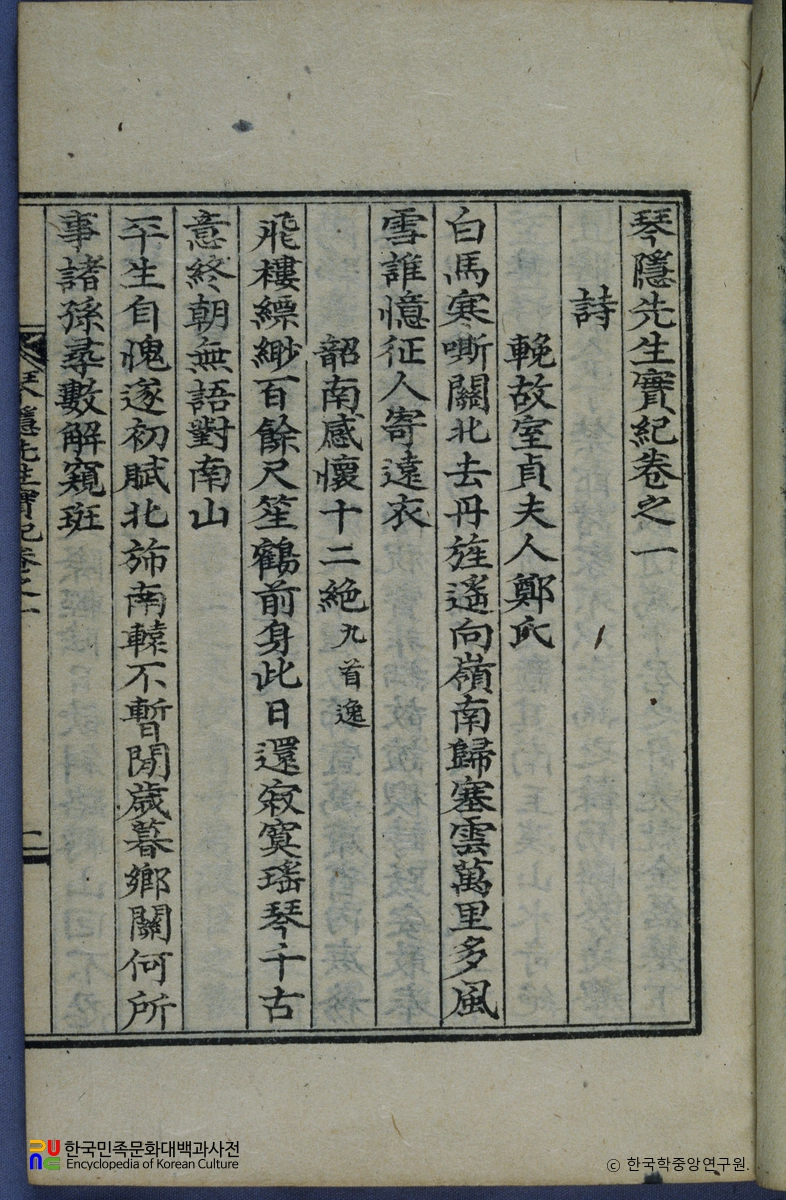 琴隱先生實紀卷之一
詩
輓故室貞夫人鄭氏
白馬寒嘶關北去丹旌遙向嶺南歸塞雲萬里多風
雪誰憶征人寄遠衣
韶南感懷十二絶九首逸
飛樓縹緲百餘尺笙鶴前身此日還寂寞瑤琴千古
意終朝無語對南山
平生自愧遂初賦北斾南轅不暫閒歲暮鄉關何所
事諸孫尋數解窺斑
琴隱先生實紀卷之一
一
한국민족문화대백과사전
Encyclopedia of Korean Culture
© 한국학중앙연구원.